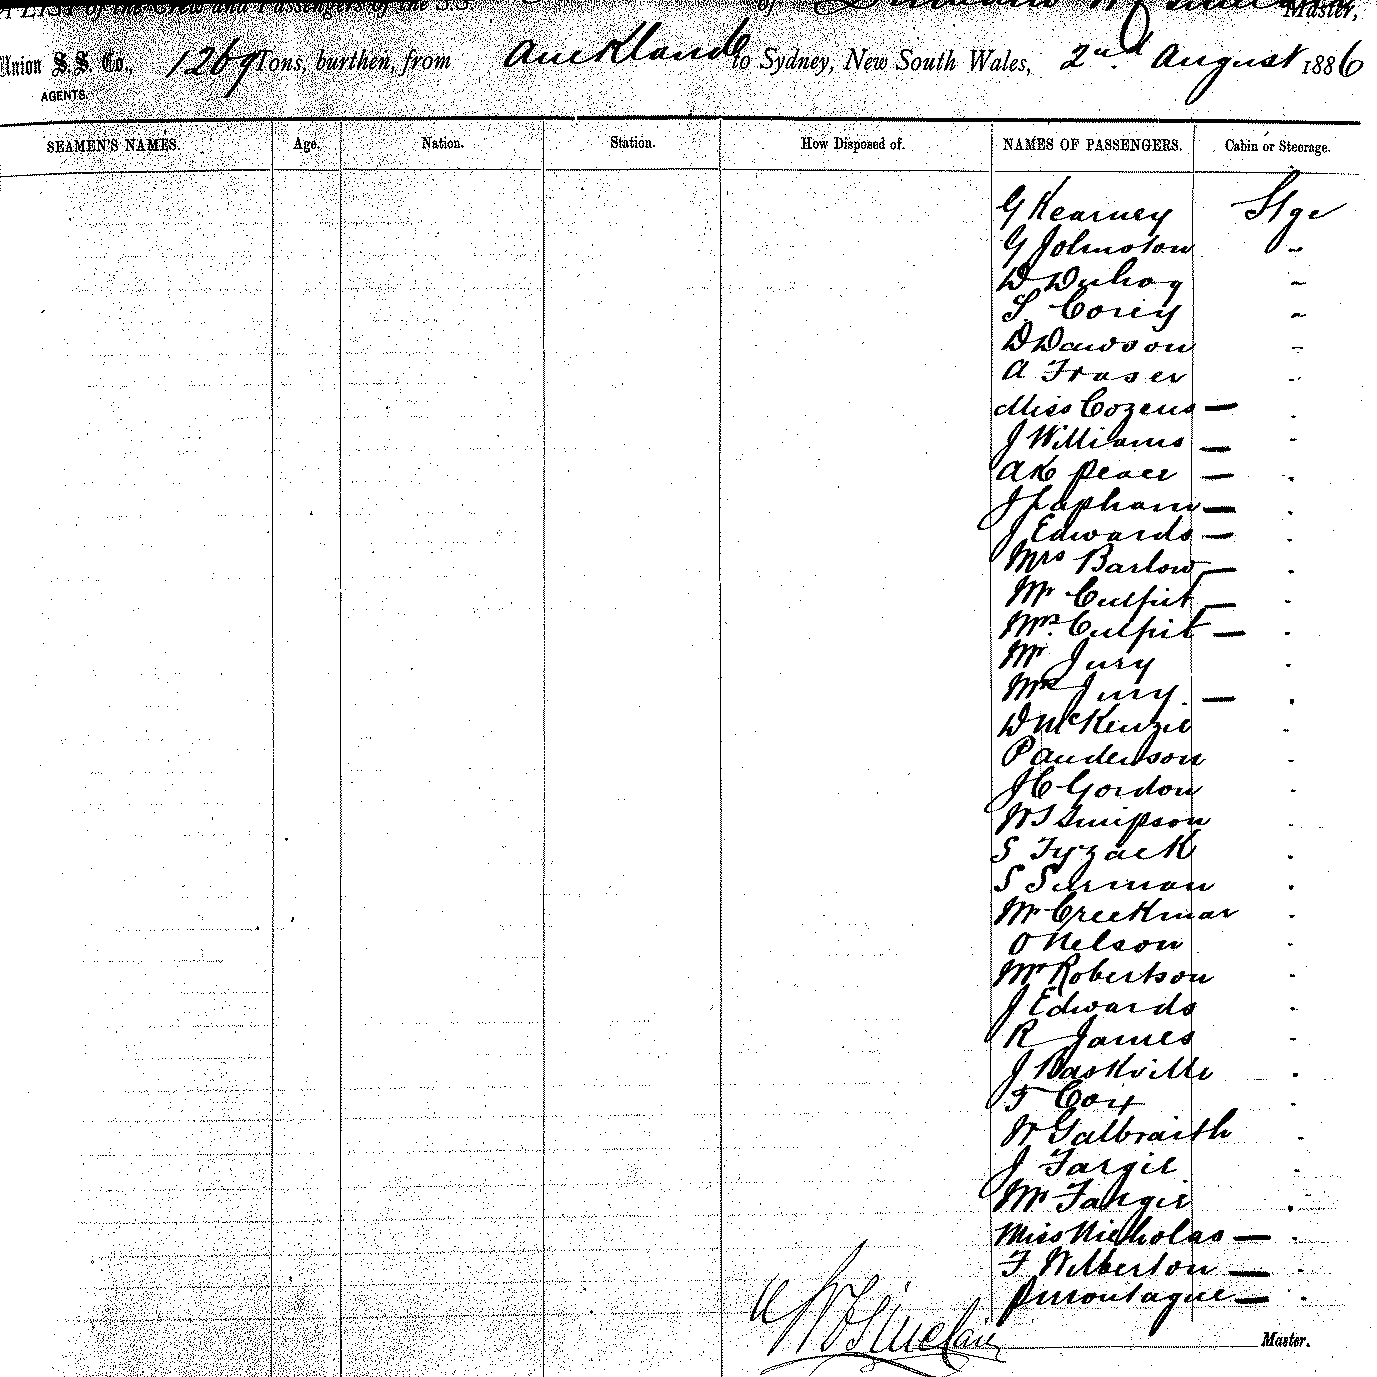 LIST of the Crew and Passengers of the S.S. of Master,
Union S.S. Co., 1269 Tons, burthen, from Auckland to Sydney, New South Wales, 2nd August 1886
AGENTS.
SEAMEN'S NAMES. Age. Nation. Station. How Disposed of. NAMES OF PASSENGERS. Cabin or Steerage.
G Kearney Stge
G Johnston "
D "
S Corey "
D Dawson "
A Fraser "
Miss Cozens — "
J Williams — "
A K Peace — "
J Lapham — "
J Edwards — "
Mrs Barlow — "
Mr Culpit — "
Mrs Culpit — "
Mr Jury "
Mrs Jury — "
D McKenzie "
P Anderson "
J C Gordon "
W S Simpson "
S Tyzack "
S Surman "
Mr Creekmar "
O Nelson "
Mr Robertson "
J Edwards "
R James "
J Baskville "
F Cox "
W Galbraith "
J Fargie "
Mr Fargie "
Miss Nicholas — "
F Wilberton — "
P Montague — "
Sinclair Master.